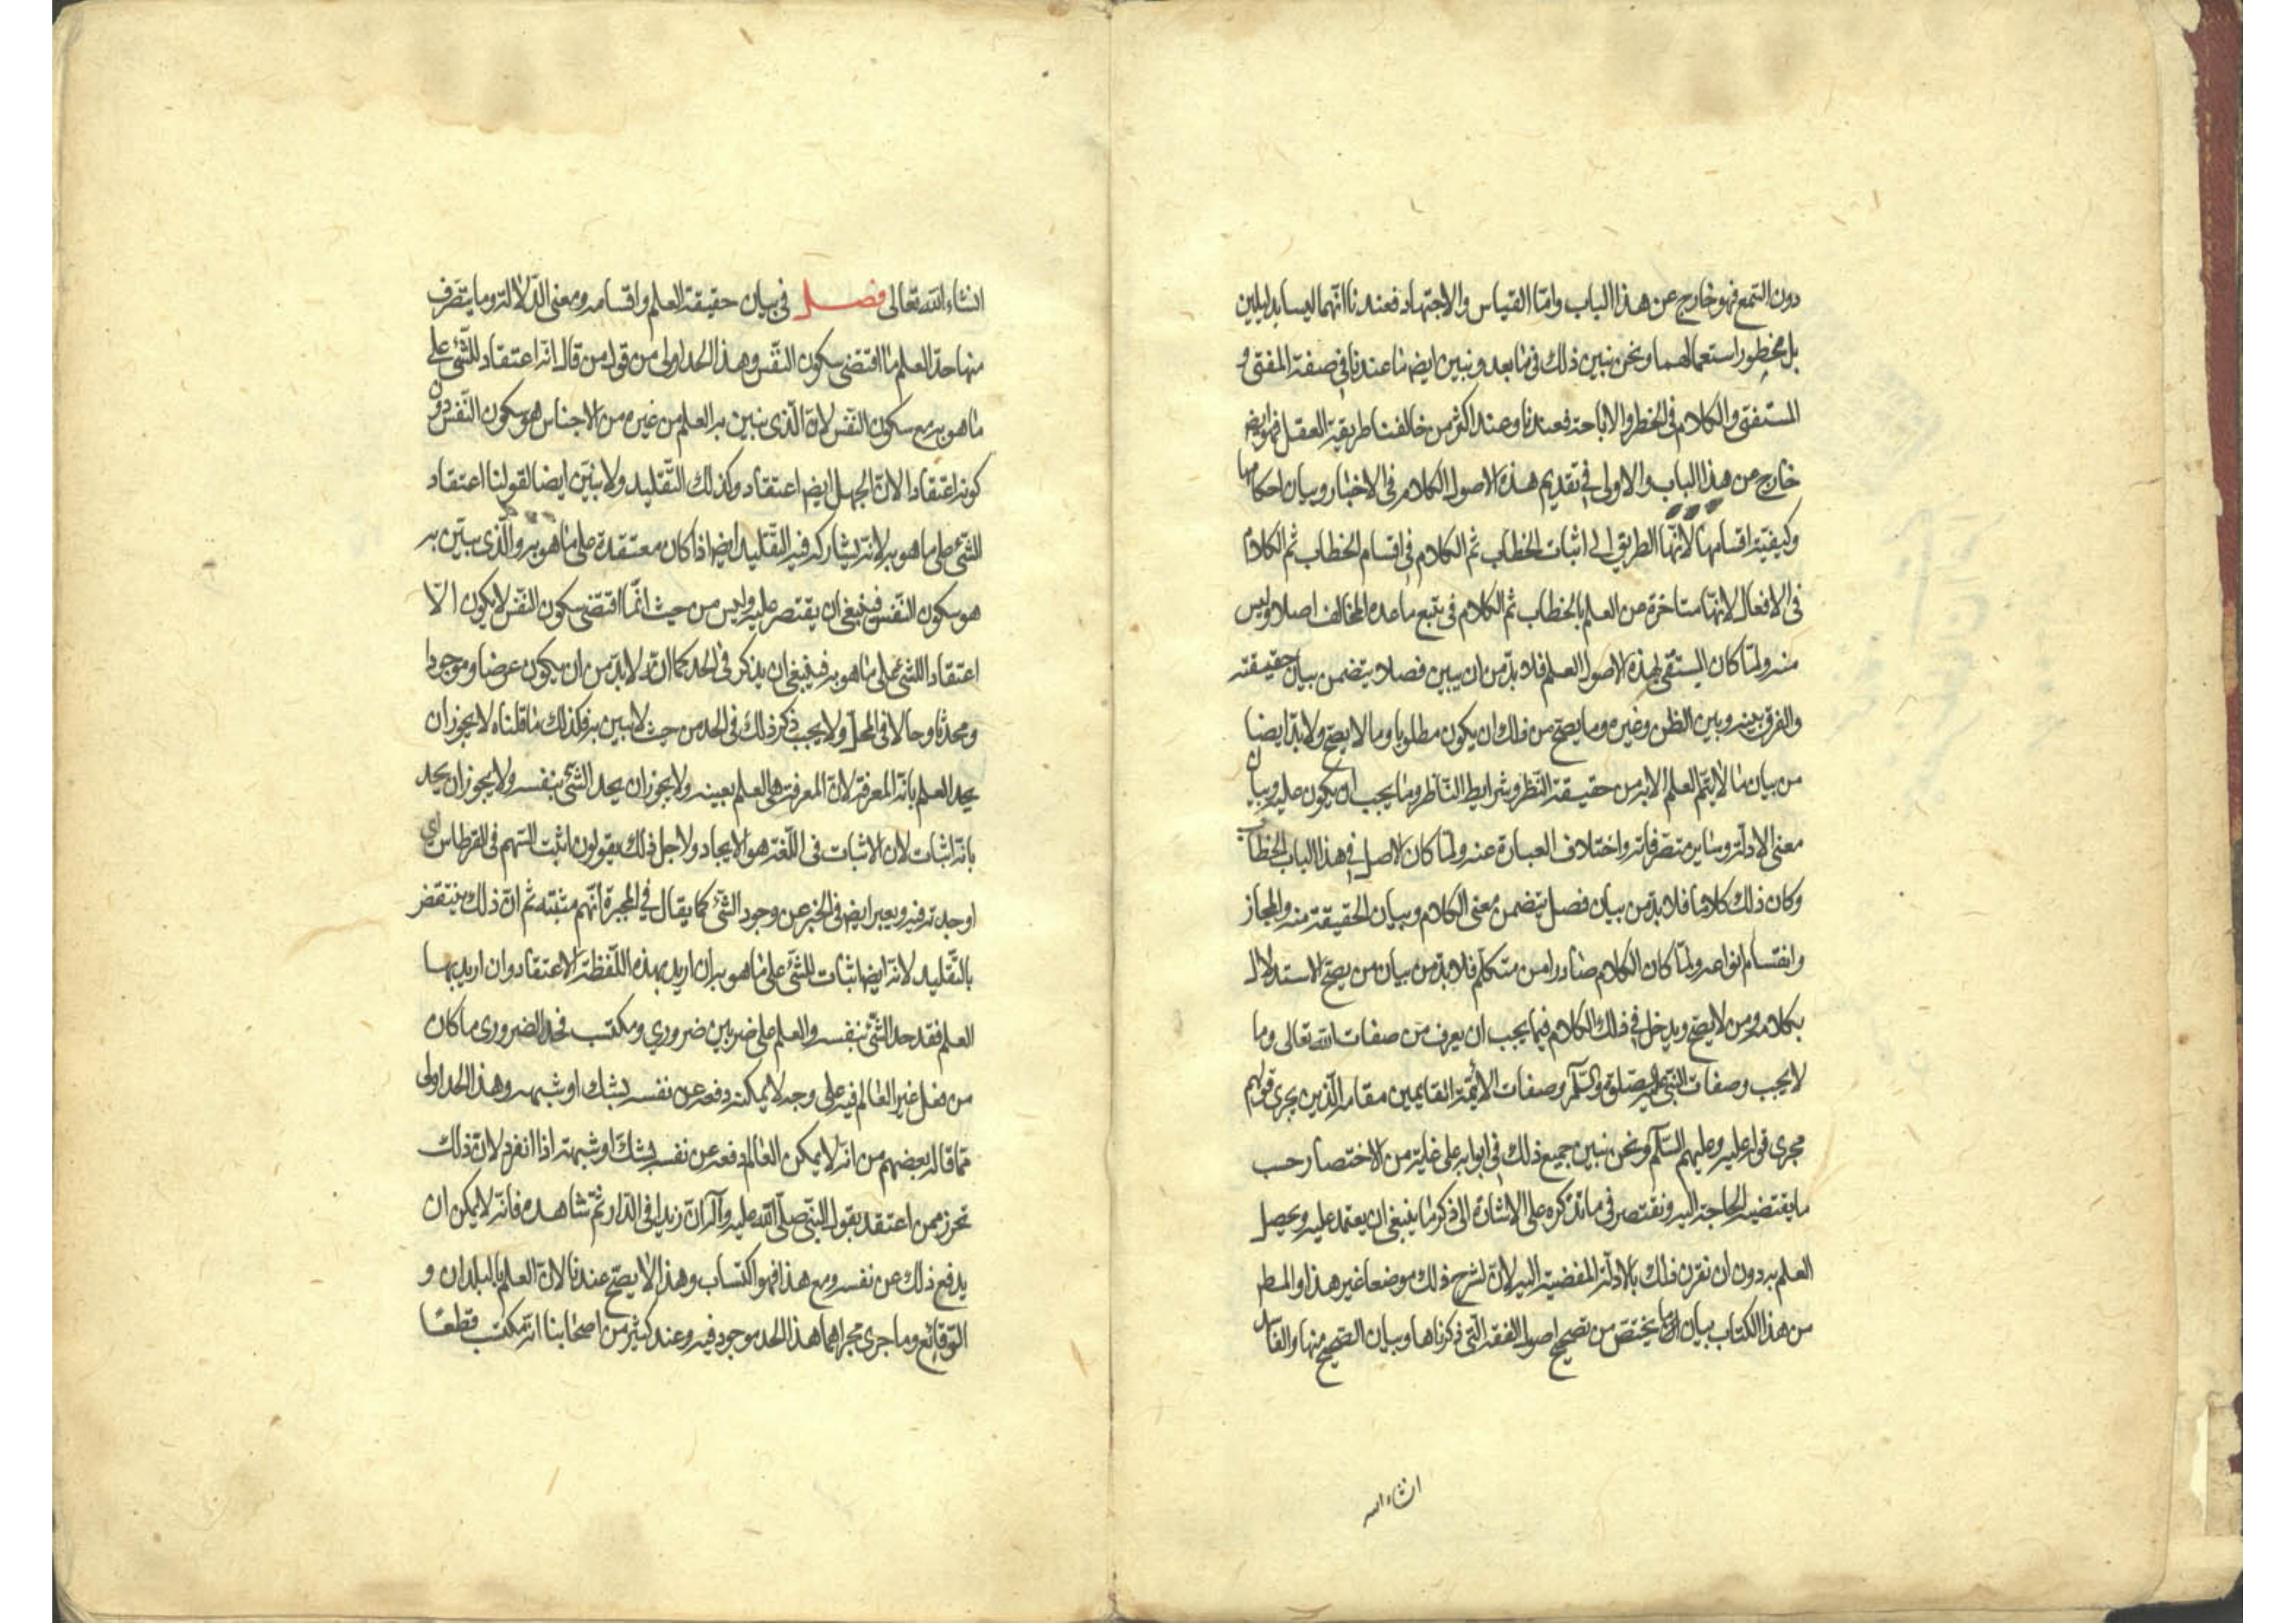 دون السمع فهو خارج عن هذا الباب واما القياس والاجتهاد فعندنا انهما ليسا بدليلين
بل محظور استعمالهما ونحن نبين ذلك فى ما بعد ونبين ايضا ما عندنا فى صفة المفتى و
المستفتى والكلام فى الحظر والاباحة فعندنا وعند اكثر من خالفنا طريقه العقل فهو ايضا
خارج من هذا الباب والاولى فى تقديم هذه الاصول الكلام فى الاخبار وبيان احكامها
وكيفية اقسامها لانها الطريق الى اثبات الخطاب ثم الكلام فى اقسام الخطاب ثم الكلام
فى الافعال لانها متاخرة عن العلم بالخطاب ثم الكلام فى تتبع ما عده المخالف اصلا وليس
منه ولما كان المبتغى بهذه الاصول العلم فلا بد من ان يبين فصلا يتضمن بيان حقيقته
والفرق بينه وبين الظن وغيره وما يصح من ذلك ان يكون مطلوبا وما لا يصح ولا بد ايضا
من بيان ما لا يتم العلم الا به من حقيقة النظر وشرايط الناظر وما يجب ان يكون عليه وبيان
معنى الادلة وساير متصرفاته واختلاف العبارة عنه ولما كان الاصل فى هذا الباب الخطاب
وكان ذلك كلاما فلا بد من بيان فصل يتضمن معنى الكلام وبيان الحقيقة منه والمجاز
وانقسام انواعه ولما كان الكلام صادرا من متكلم فلا بد من بيان من يصح الاستدلال
بكلامه ومن لا يصح ويدخل فى ذلك الكلام فيما يجب ان يعرف من صفات الله تعالى وما
لا يجب وصفات النبى عليه الصلوة والسلم وصفات الأئمة القايمين مقامه الذين يجرى قولهم
مجرى قوله عليه وعليهم السلم ونحن نبين جميع ذلك فى ابوابه على غاية من الاختصار حسب
ما يقتضيه الحاجة اليه ونقتصر فى ما نذكره على الاشارة الى ذكر ما ينبغى ان يعتمد عليه ويحصل
العلم به دون ان نقرن ذلك بالادلة المفضية اليه لان لشرح ذلك موضعا غير هذا والمط
من هذا الكتاب بيان ما يختص من تصحيح اصول الفقه التى ذكرناها وبيان الصحيح منها والفاسد
انشاء الله
انشاء الله تعالى فصل فى بيان حقيقة العلم واقسامه ومعنى الدلالة وما يتصرف
منها حد العلم ما اقتضى سكون النفس وهذا الحد اولى من قول من قال انه اعتقاد للشئ على
ما هو به مع سكون النفس لان الذى نبين به العلم من غيره من الاجناس هو سكون النفس دون
كونه اعتقادا لان الجهل ايضا اعتقاد وكذلك التقليد ولا نبين ايضا لقولنا اعتقاد
الشئ على ما هو به لانه يشاركه فيه التقليد ايضا اذا كان معتقده على ما هو به والذى يبين به
هو سكون النفس فينبغى ان يقتصر عليه وليس من حيث انما اقتضى سكون النفس لا يكون الا
اعتقادا للشئ على ما هو به فينبغى ان يذكر فى الحد كما انه لابد من ان يكون عرضا وموجودا
ومحدثا وحالا فى المحل ولا يجب ذكر ذلك فى الحد من حيث لا نبين به فكذلك ما قلناه لا يجوز ان
يحد العلم بانه المعرفة لان المعرفة هى العلم بعينه ولا يجوز ان يحد الشئ بنفسه ولا يجوز ان يحد
بانه اثبات لان الاثبات فى اللغة هو الايجاد ولاجل ذلك يقولون اثبت السهم فى القرطاس اى
اوجدته فيه ويعبر ايضا فى الخبر عن وجود الشئ كما يقال فى المجبرة انهم مثبته ثم ان ذلك ينتقض
بالتقليد لانه ايضا اثبات للشئ على ما هو به ان اريد بهذه اللفظة الاعتقاد وان اريد بها
العلم فقد حد الشئ بنفسه والعلم على ضربين ضرورى ومكتسب فحد الضرورى ما كان
من فعل غير العالم فيه على وجه لا يمكنه دفعه عن نفسه بشك او شبهه وهذا الحد اولى
مما قاله بعضهم من انه لا يمكن العالم دفعه عن نفسه بشك او شبهة اذا انفرد لان ذلك
تحرز ممن اعتقد بقول النبى صلى الله عليه وآله ان زيدا فى الدار ثم شاهده فانه لا يمكن ان
يدفع ذلك عن نفسه ومع هذا فهو اكتساب وهذا لا يصح عندنا لان العلم بالبلدان و
الوقائع وما جرى مجراهما هذا الحد موجود فيه وعند كثير من اصحابنا انه مكتسب قطعا